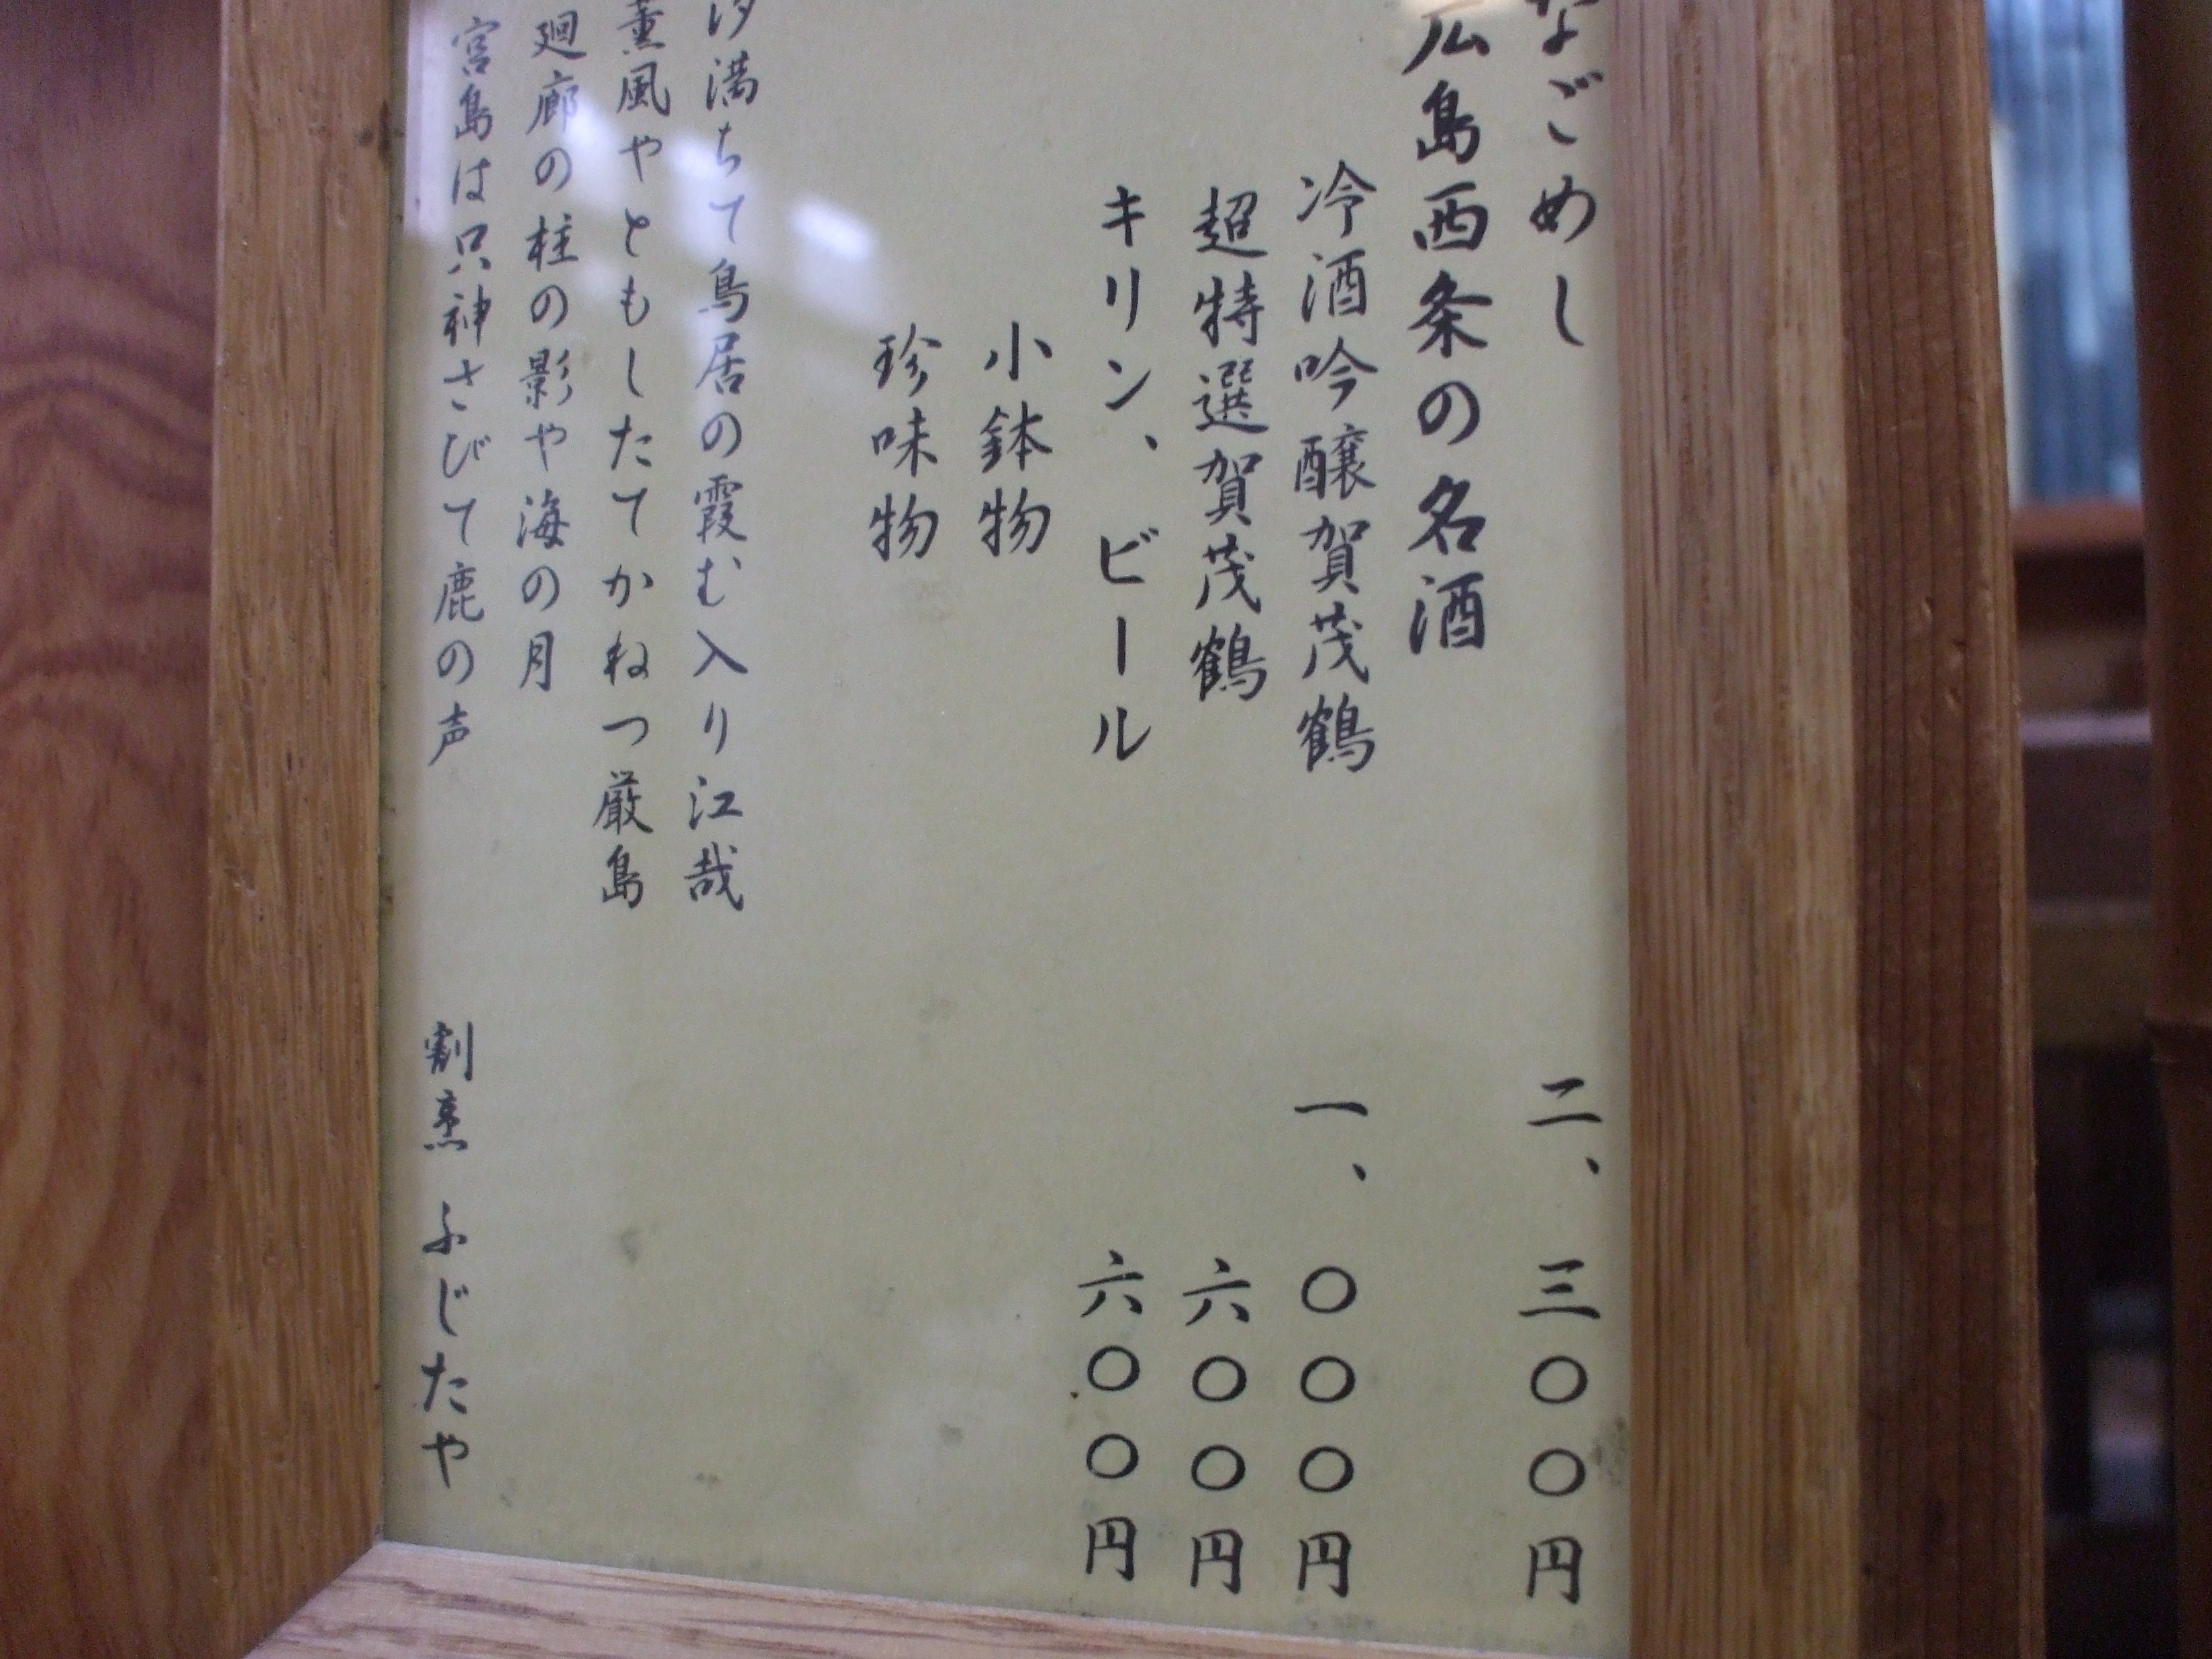 なごめし 二、三〇〇円
広島西条の名酒
冷酒吟醸賀茂鶴 一、〇〇〇円
超特選賀茂鶴 六〇〇円
キリン、ビール 六〇〇円
小鉢物
珍味物
汐満ちて鳥居の霞む入り江哉
薫風やともしたてかねつ厳島
廻廊の柱の影や海の月
宮島は只神さびて鹿の声
割烹 ふじたや